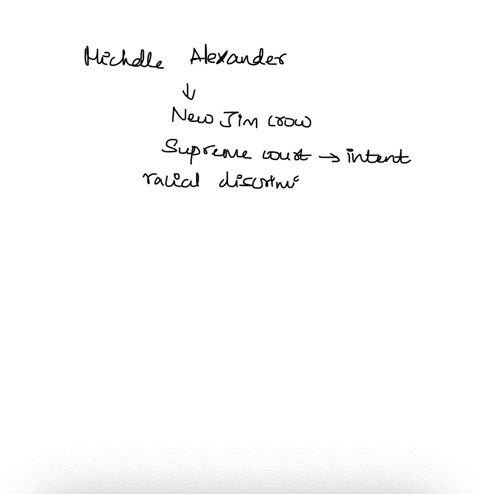 Michelle Alexander
↓
New Jim crow
Supreme court → intent
racial discrimi